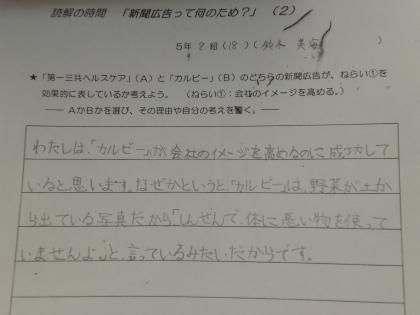 読解の時間 「新聞広告って何のため？」（2）
5年 2組（18）（鈴木 美
★「第一三共ヘルスケア」（A）と「カルビー」（B）のどちらの新聞広告が、ねらい①を
効果的に表しているか考えよう。 （ねらい①：会社のイメージを高める。）
―― AかBかを選び、その理由や自分の考えを書く。――
わたしは、「カルビー」が会社のイメージを高めるのに成功して
いると思います。なぜかというと、「カルビー」は、野菜が土か
ら出ている写真だから「しんせんで、体に悪い物を使って
いませんよ。」と、言っているみたいだからです。